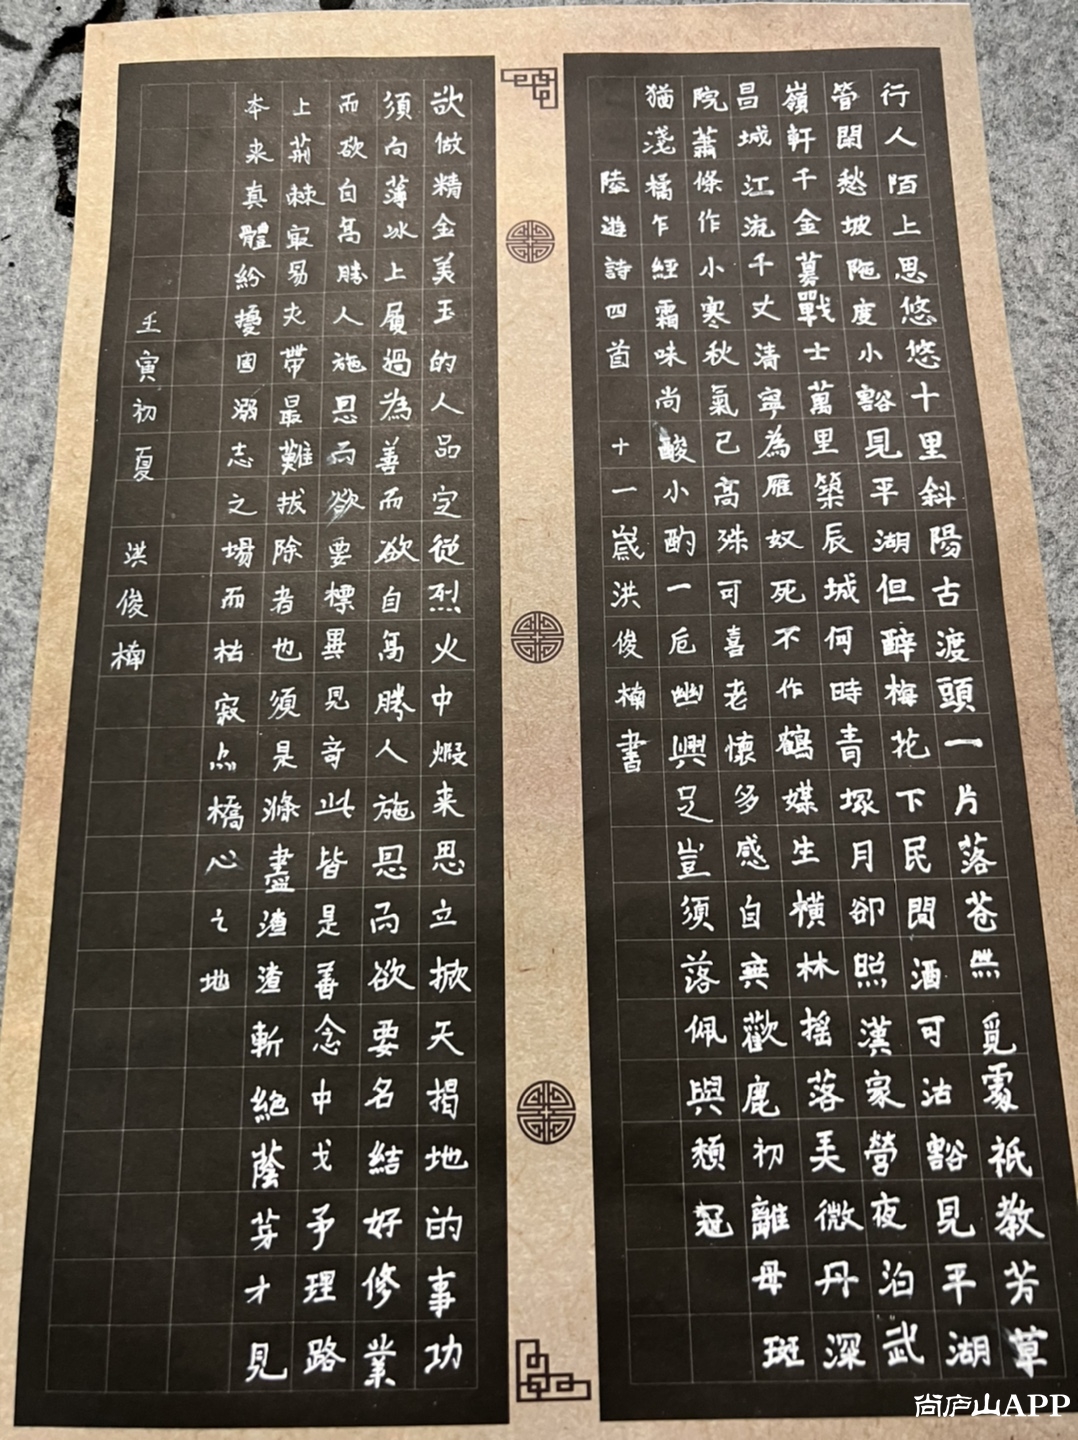 行人陌上思悠悠十里斜陽古渡頭一片落苍然覓處祇教芳草
管閑愁坡陁度小豁見平湖但醉梅花下民間酒可沽豁見平湖
嶺軒千金募戰士萬里築辰城何時青塚月卻照漢家營夜泊武
昌城江流千丈清寧為雁奴死不作鶴媒生橫林摇落美微丹深
院蕭條作小寒秋氣已高殊可喜老懷多感自無歡鹿初離母斑
猶淺橘乍經霜味尚酸小酌一卮幽興足豈須落佩與頹冠
陸遊詩四首 十一歲洪俊楠書
欲做精金美玉的人品定從烈火中煅来思立掀天揭地的事功
須向薄冰上履過為善而欲自高勝人施恩而欲要名結好修業
而欲自高勝人施恩而欲要標異見奇此皆是善念中戈矛理路
上荊棘最易夾帶最難拔除者也須是滌盡渣渣斬絕蔭芽才見
本来真體紛擾固溺志之場而枯寂点橋心之地
壬寅初夏 洪俊楠
尚庐山APP